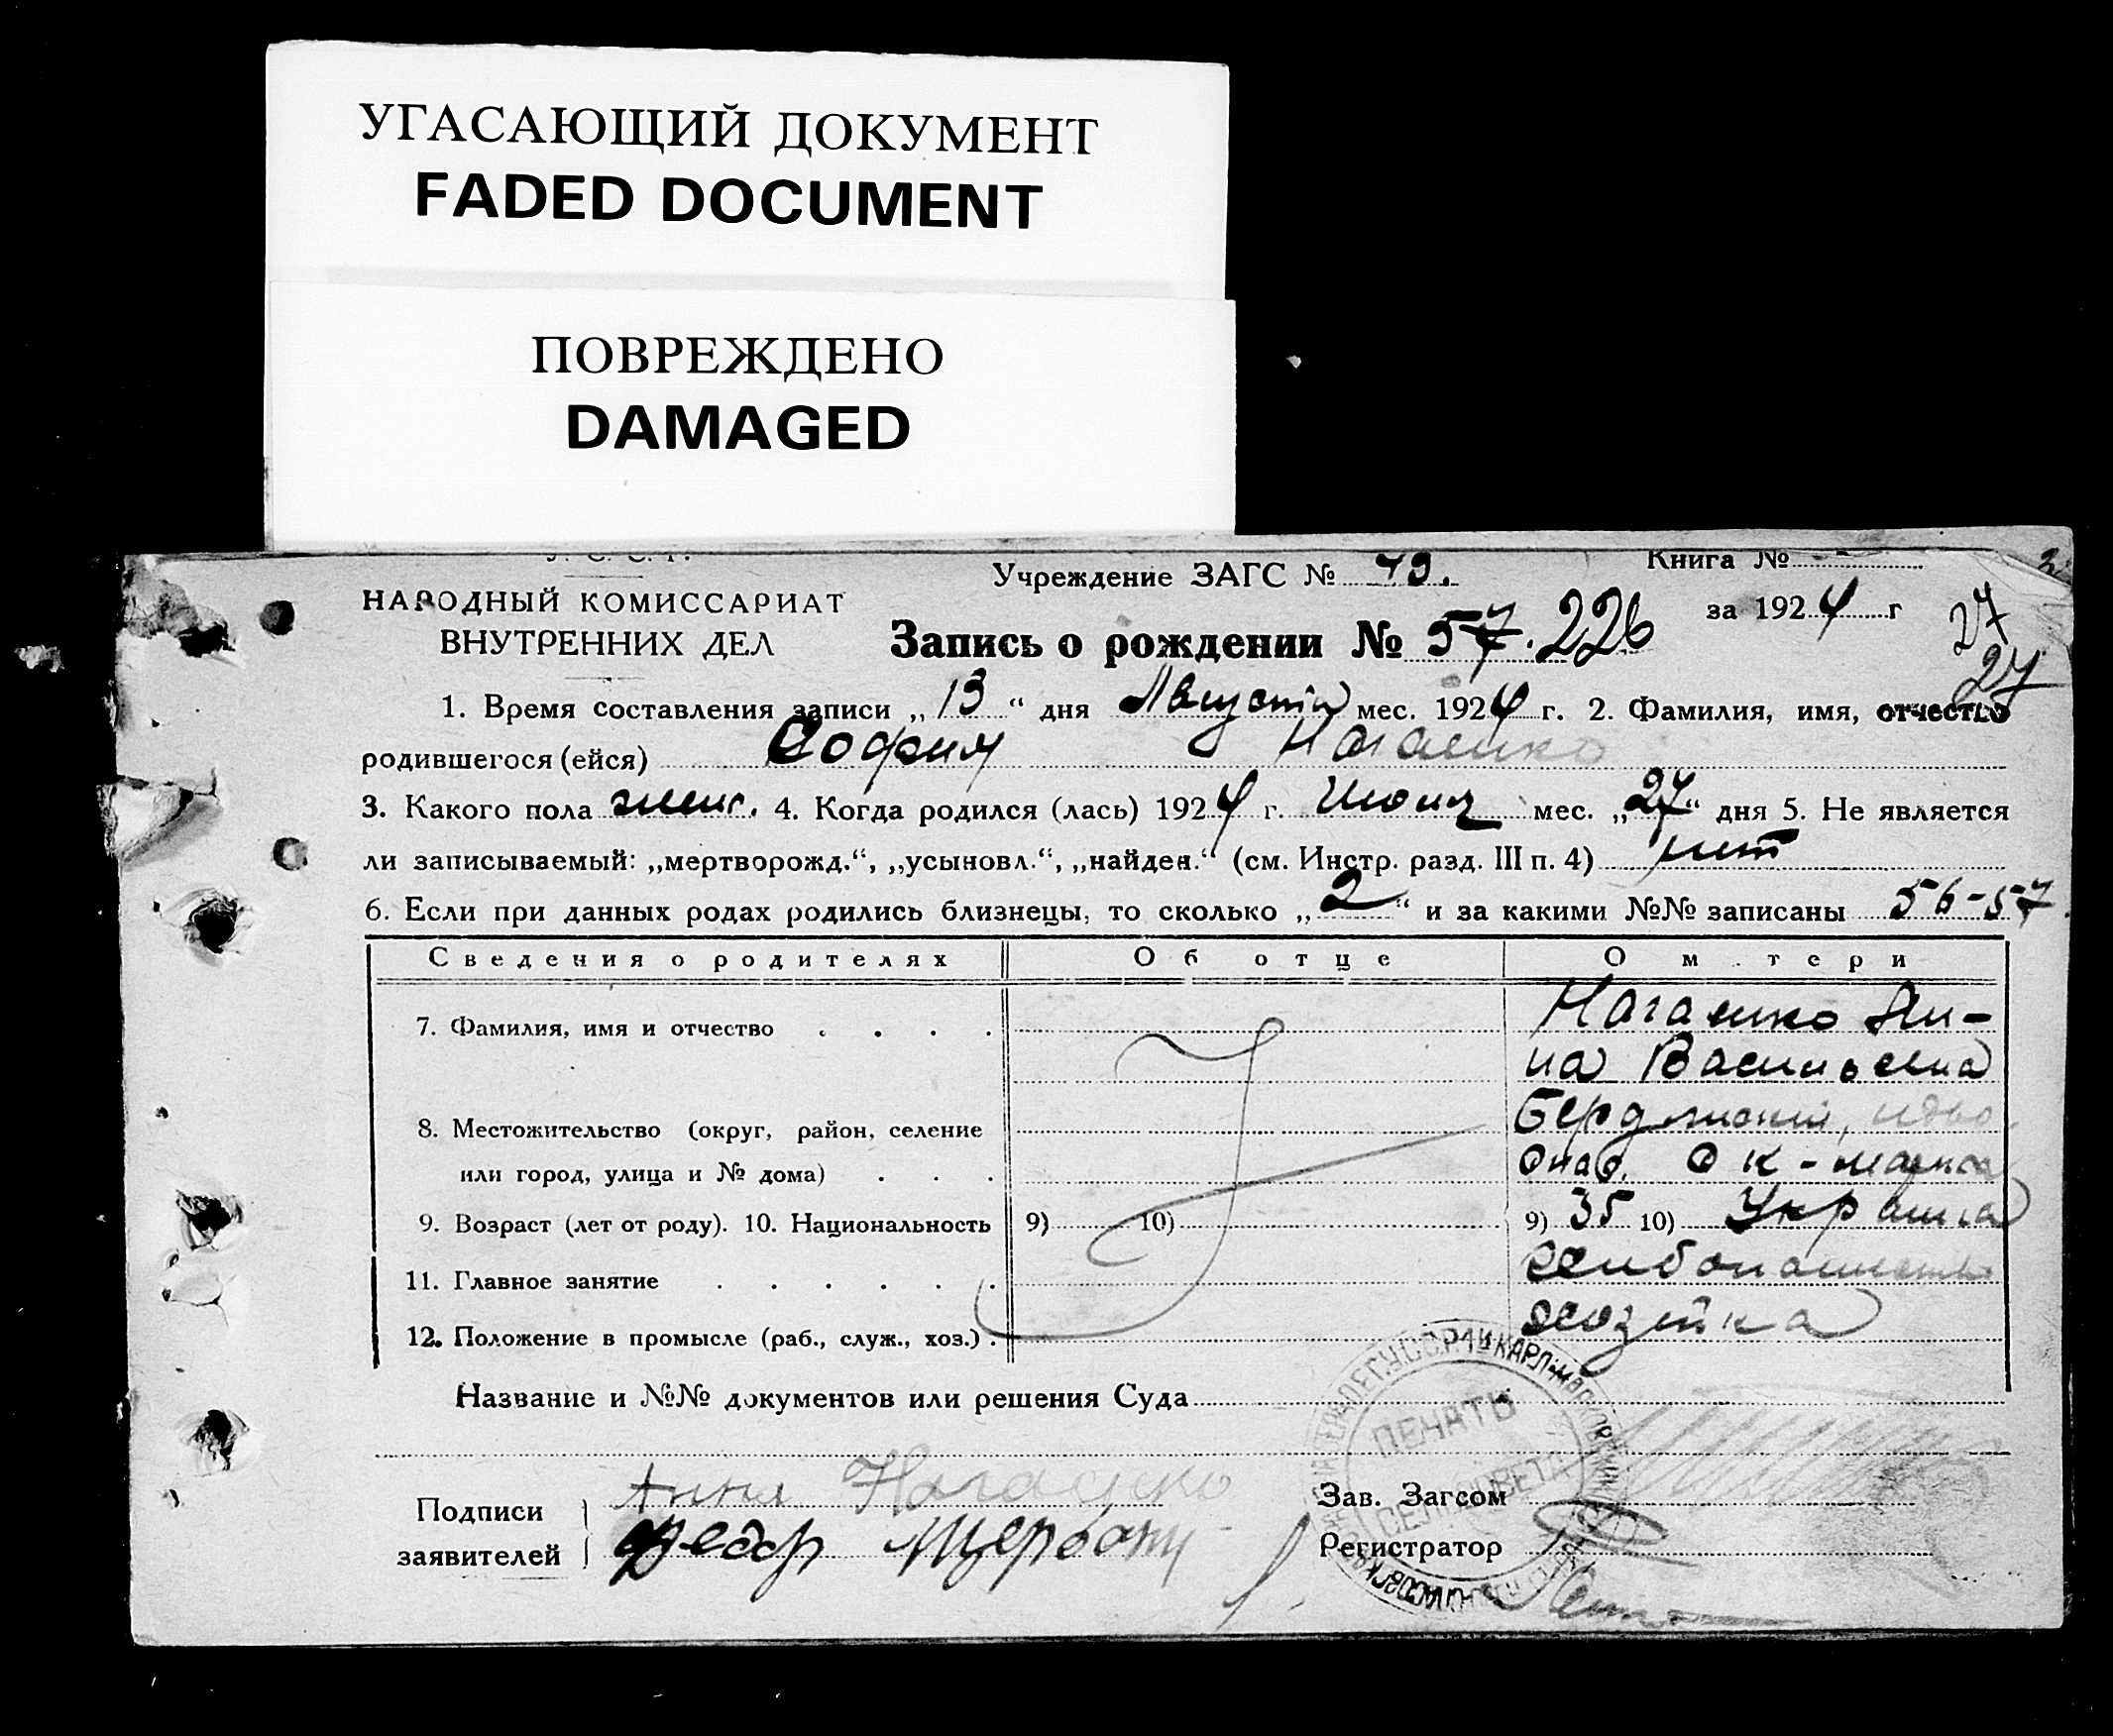 УГАСАЮЩИЙ ДОКУМЕНТ
FADED DOCUMENT
ПОВРЕЖДЕНО
DAMAGED
Учреждение ЗАГС № 79. Книга №
НАРОДНЫЙ КОМИССАРИАТ
за 1924 г 27
ВНУТРЕННИХ ДЕЛ Запись о рождении № 57. 226
27
1. Время составления записи „13“ дня Августа мес. 1924 г. 2. Фамилия, имя, отчество
родившегося (ейся) София Нагаенко
3. Какого пола женс. 4. Когда родился (лась) 1924 г. Июля мес. „27“ дня 5. Не является
ли записываемый: „мертворожд.“, „усыновл.“, „найден.“ (см. Инстр. разд. III п. 4) нет
6. Если при данных родах родились близнецы, то сколько „2“ и за какими №№ записаны 56-57
Сведения о родителях Об отце О м тери
7. Фамилия, имя и отчество Нагаенко Ан-
на Васильевна
8. Местожительство (округ, район, селение Бердянский,
или город, улица и № дома)
9. Возраст (лет от роду). 10. Национальность 9) 10) 9) 35 10) Украинка
11. Главное занятие
12. Положение в промысле (раб., служ., хоз.) хозяйка
Название и №№ документов или решения Суда
ПЕЧАТЬ
СЕЛЬСОВЕТА
Подписи Анна Нагаенко Зав. Загсом
заявителей Федор Щербань Регистратор